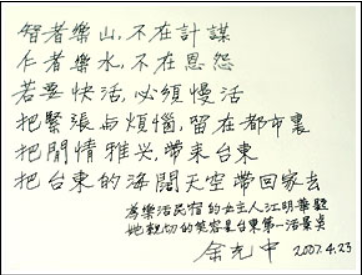 智者樂山,不在計謀
仁者樂水,不在恩怨
若要快活,必須慢活
把緊張与煩惱,留在都市裏
把閒情雅兴,帶来台東
把台東的海闊天空帶回家去
為樂活民宿的女主人江明華題
她親切的笑容是台東第一活景点
余光中 2007.4.23